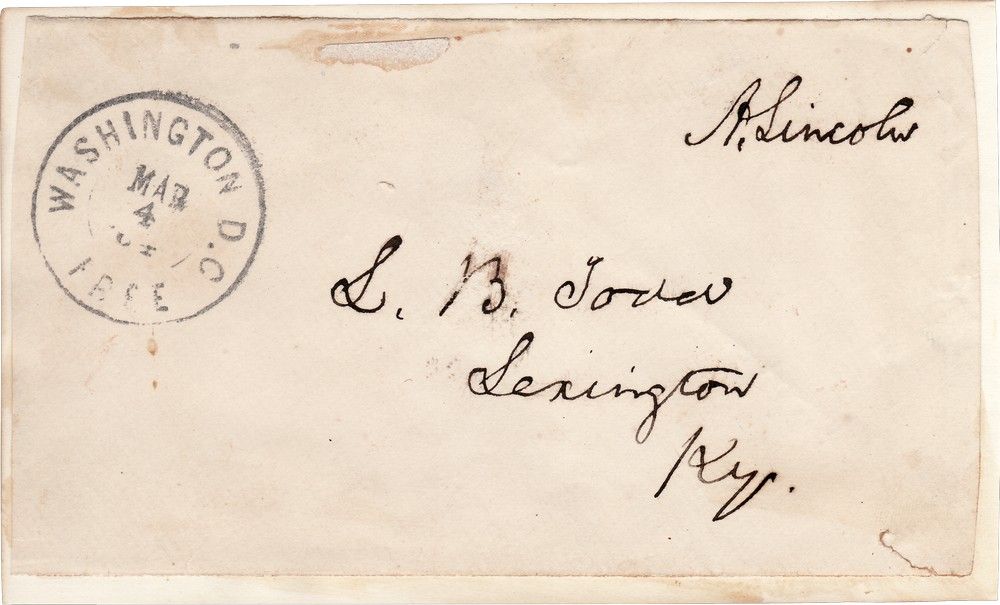 A. Lincoln
WASHINGTON D.C
MAR
4
FREE
L. B. Todd
Lexington
Ky.